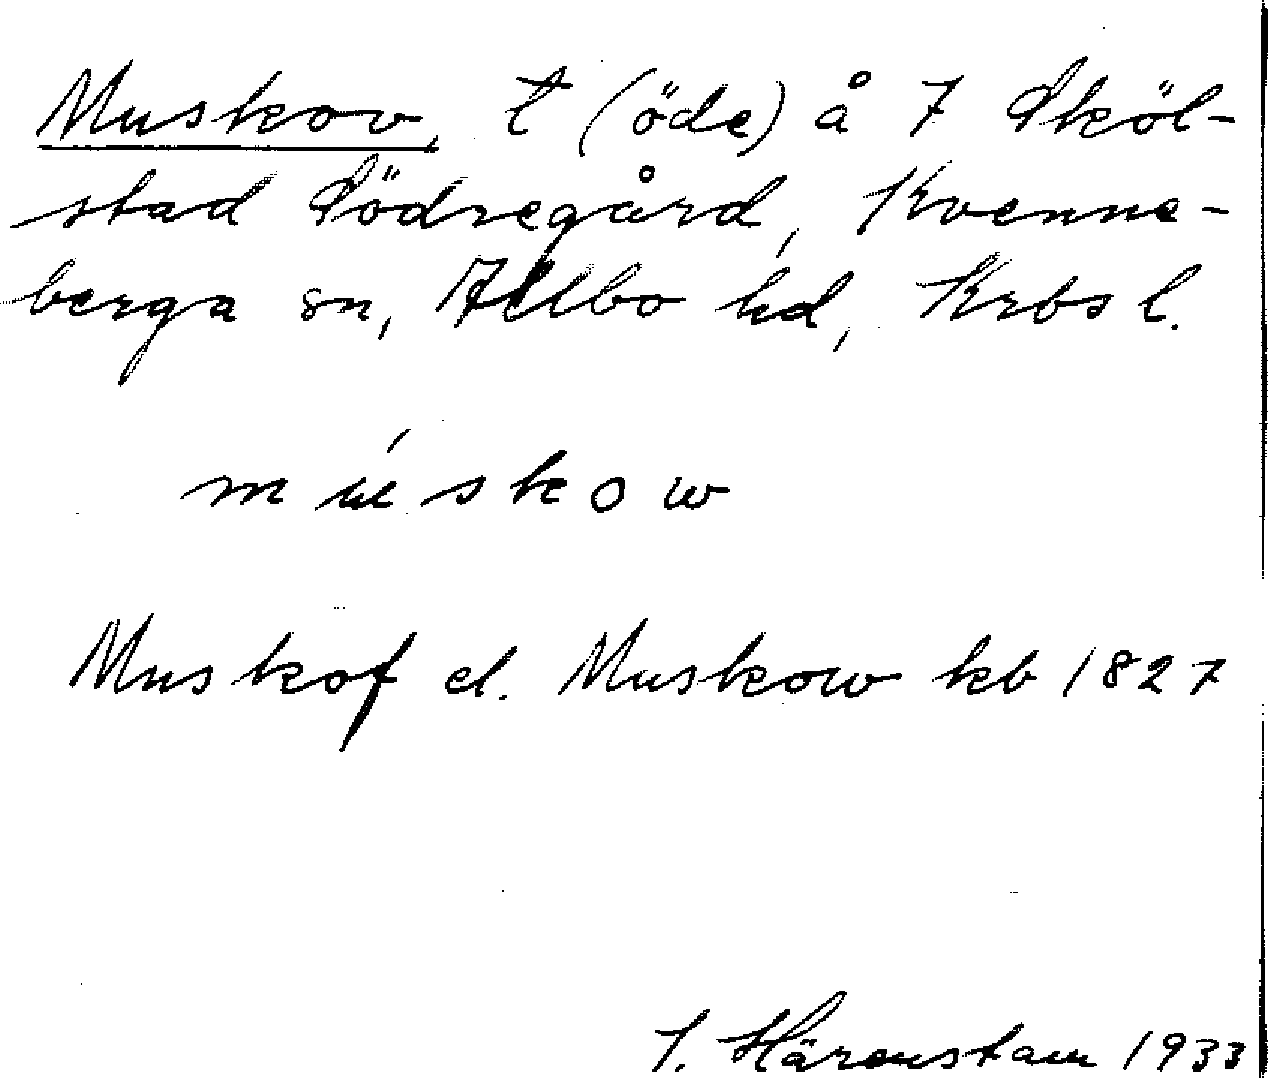 Muskov, t (öde) å 7 Sköl-
stad Södregård, Kvenne-
berga sn, Allbo hd, Krbs l.
múskow
Muskof el. Muskow kb 1827
J. Härenstam 1933